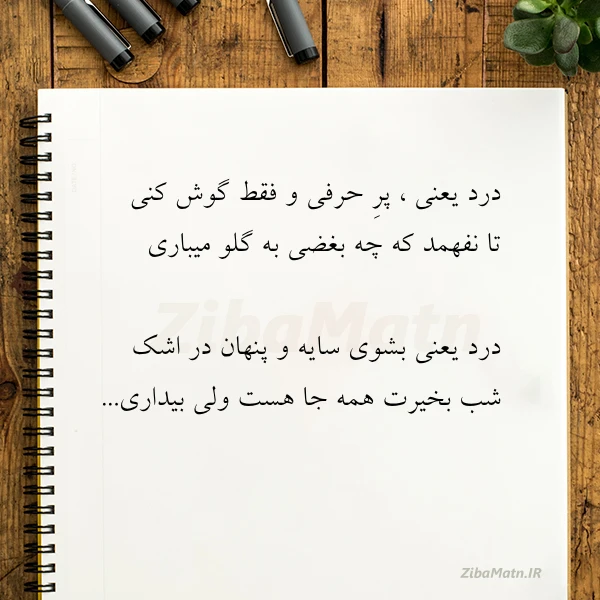 درد یعنی ، پرِ حرفی و فقط گوش کنی
تا نفهمد که چه بغضی به گلو میباری
ZibaMatn
درد یعنی بشوی سایه و پنهان در اشک
شب بخیرت همه جا هست ولی بیداری...
ZibaMatn.IR